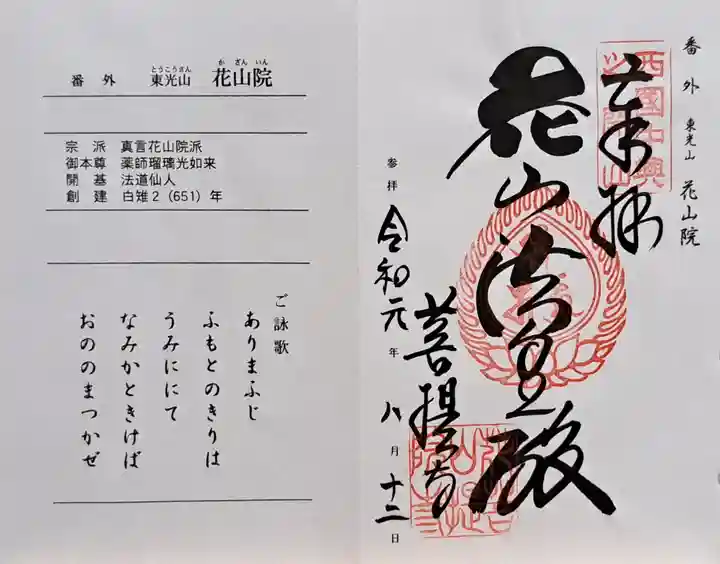 番外 東光山 花山院
とうこうざん かざんいん
宗派 真言花山院派
御本尊 薬師瑠璃光如来
開基 法道仙人
創建 白雉2(651)年
ご詠歌
ありまふじ
ふもとのきりは
うみににて
なみかときけば
おののまつかぜ
番外 東光山 花山院
奉拝
花山法皇殿
菩提寺
参拝 令和元年 八月 十二日